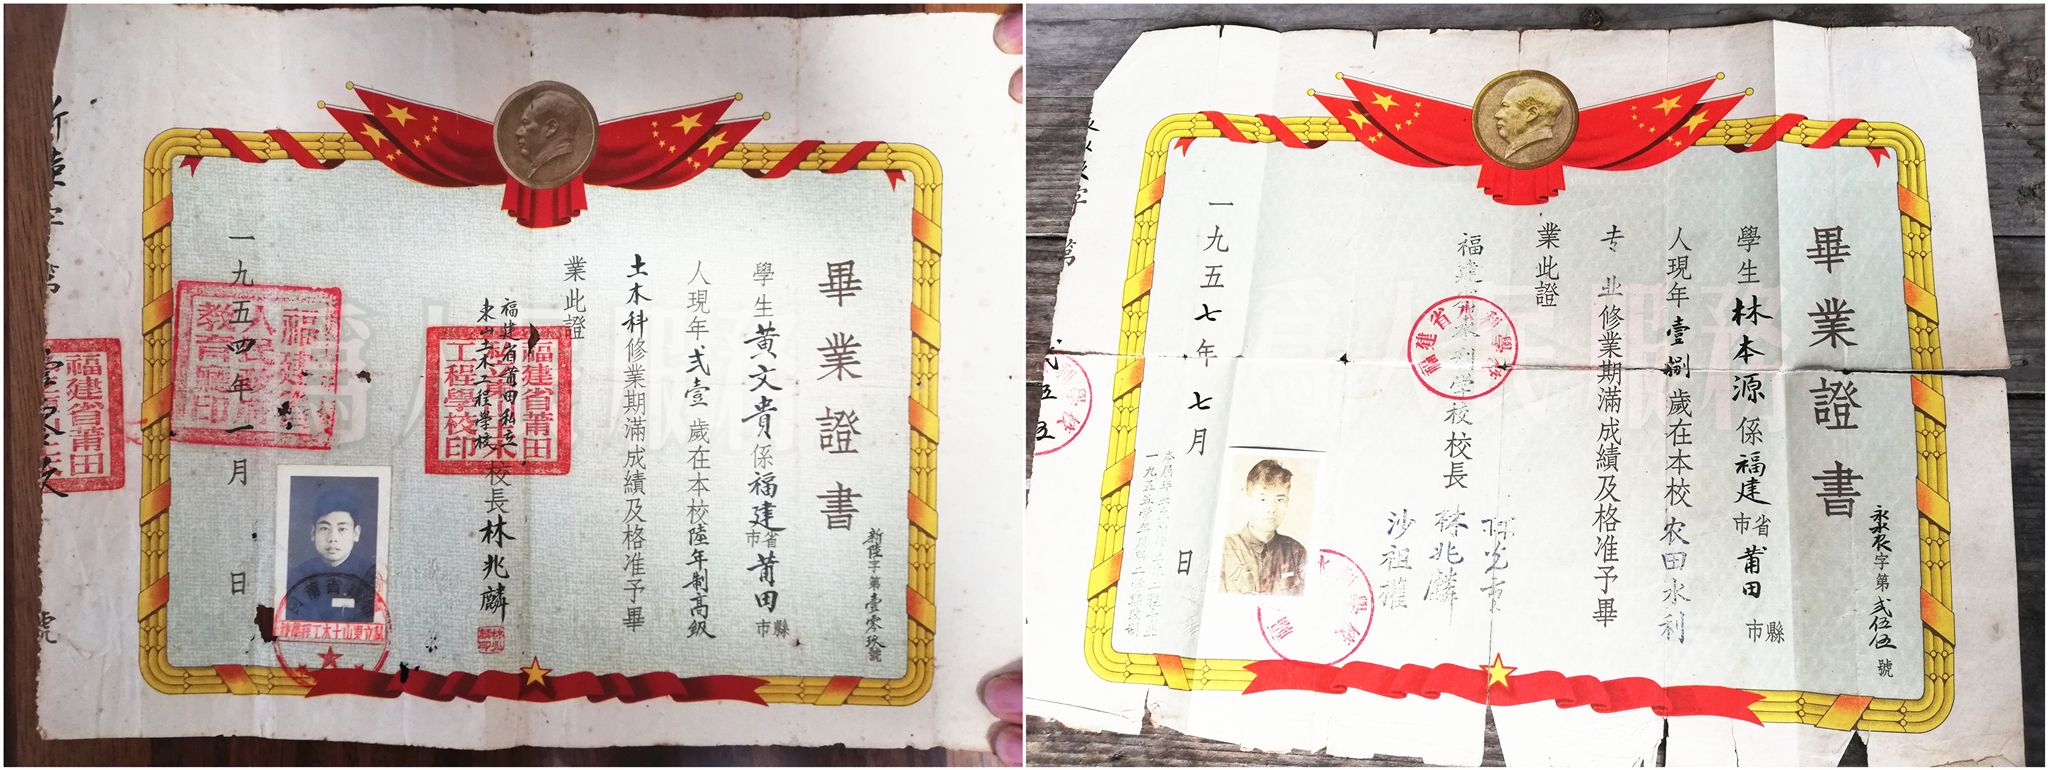 畢業證書
新陸字第壹零玖號
學生黃文貴係福建省市莆田縣市
人現年弍壹歲在本校陸年制高級
土木科修業期滿成績及格准予畢
業此證
福建省莆田私立
東山土木工程學校
校長林兆麟
一九五四年一月 日
福建省莆田
私立東山土木
工程學校印
福建省
人民政府
教育廳印
福建省莆田
號
畢業證書
永水农字第弍伍伍號
學生林本源係福建省市莆田縣市
人現年壹捌歲在本校农田水利
专业修業期滿成績及格准予畢
業此證
福建省水利学校校長
林兆麟
沙祖蔭
一九五七年七月 日
字第
弍五五